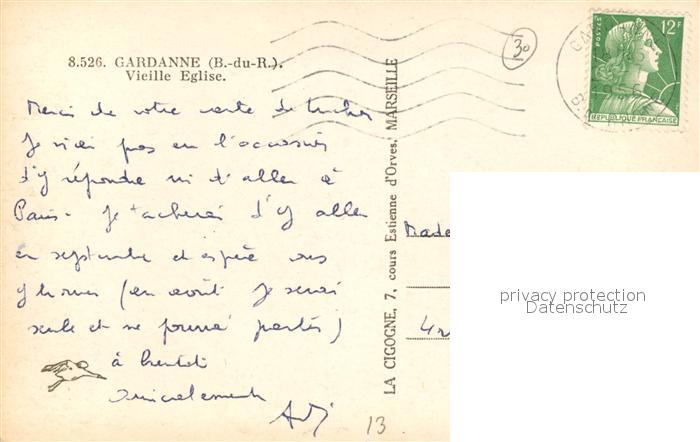 8.526. GARDANNE (B.-du-R.).
Vieille Eglise.
Merci de votre carte de
Je n'ai pas eu l'occasion
d'y répondre ni d'aller à
Paris. Je tâcherai d'y aller
en septembre et espère vous
y trouver (en août je serai
seule et ne pourrai partir)
à bientôt
Sincèrement
LA CIGOGNE, 7, cours Estienne d'Orves, MARSEILLE
30
POSTES
12F
REPUBLIQUE FRANÇAISE
Made
13
privacy protection
Datenschutz